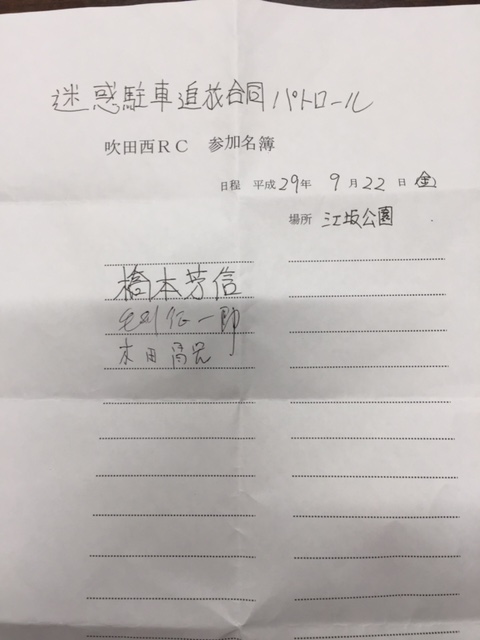 迷惑駐車追放合同パトロール
吹田西RC 参加名簿
日程 平成29年 9月22日 (金)
場所 江坂公園
橋本芳信
征一郎
木田昌宏